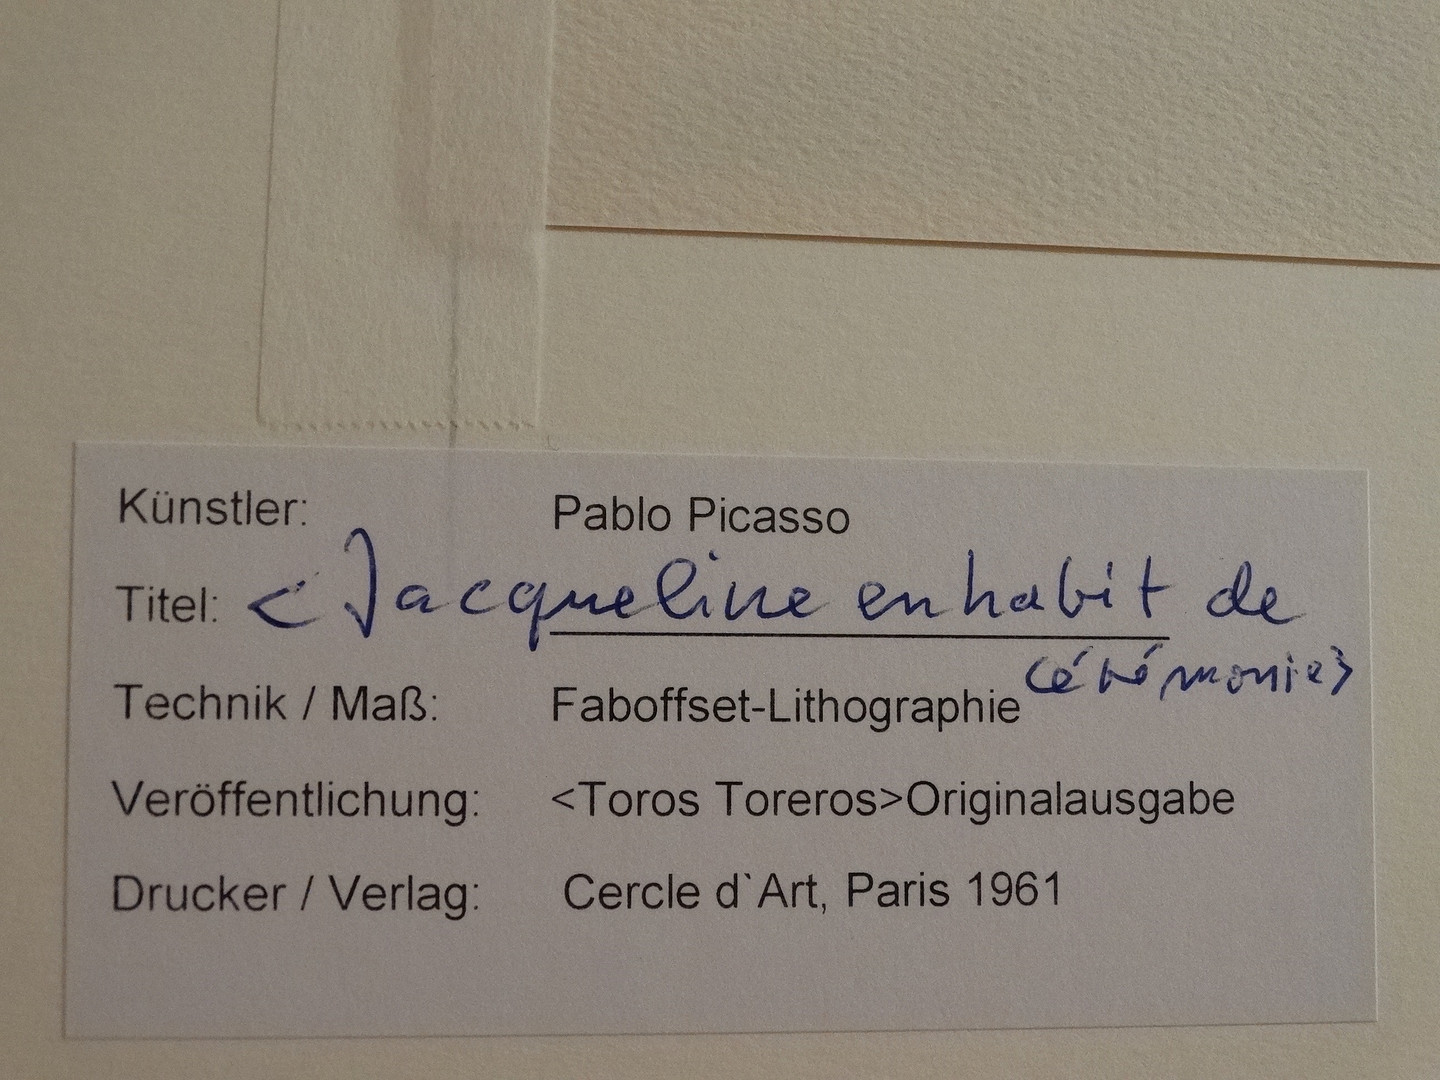 Künstler: Pablo Picasso
Titel: <Jacqueline en habit de
cérémonie>
Technik / Maß: Faboffset-Lithographie
Veröffentlichung: <Toros Toreros>Originalausgabe
Drucker / Verlag: Cercle d`Art, Paris 1961